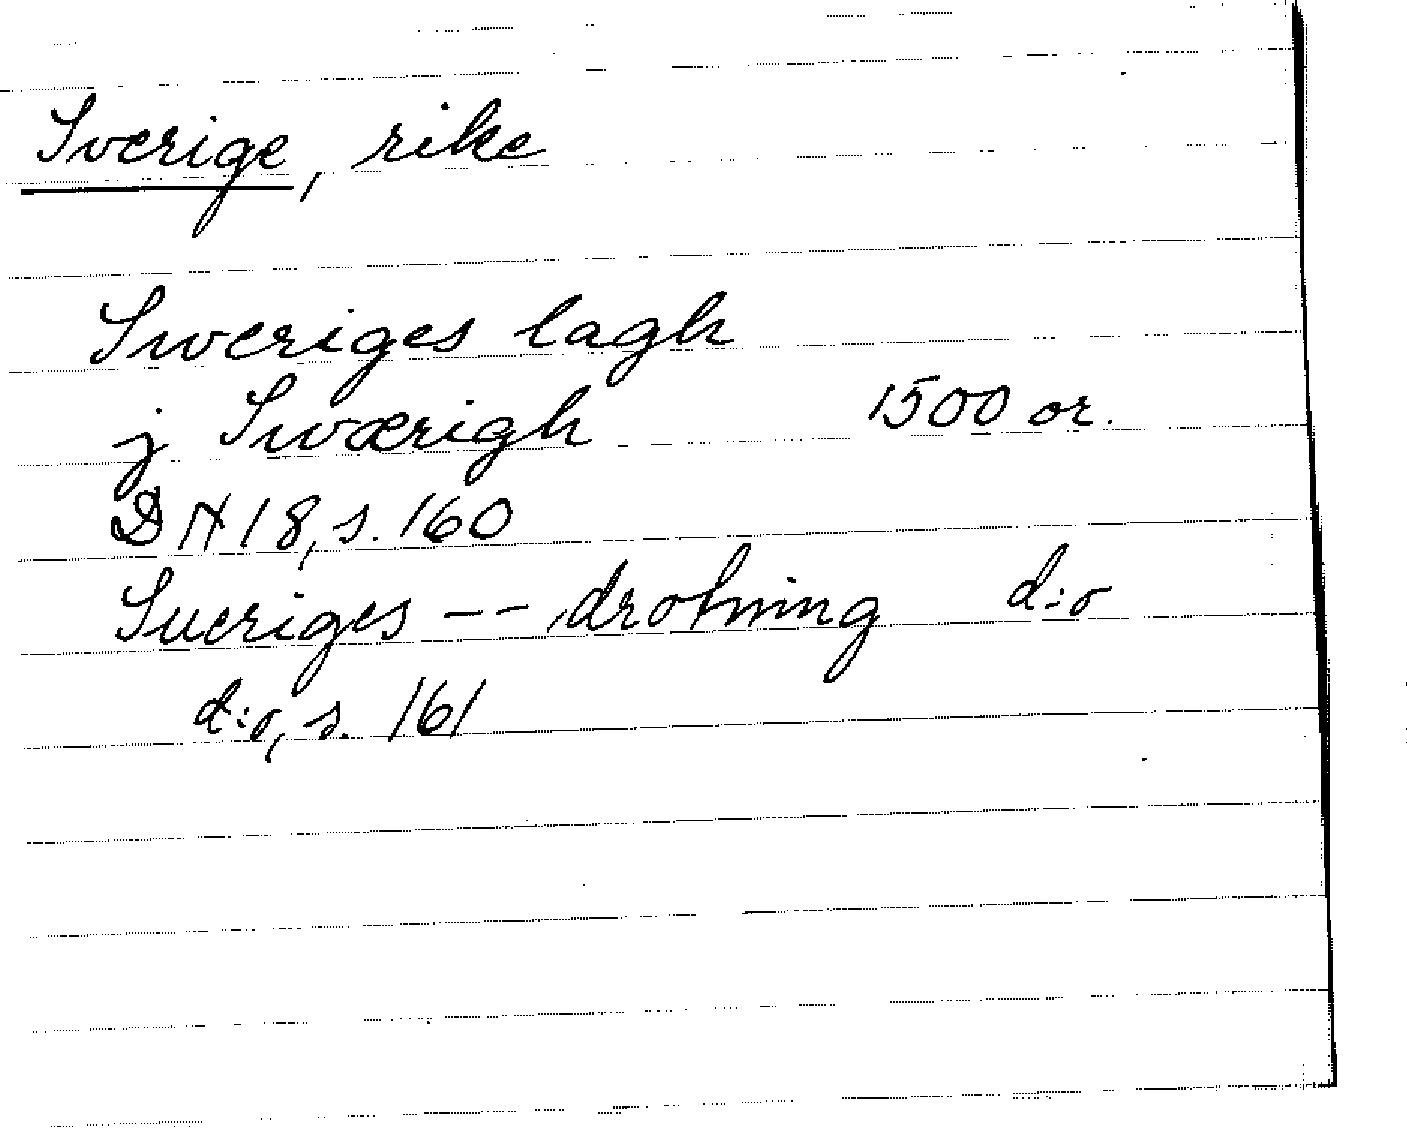 Sverige, rike
Sweriges lagh
j Swærigh 1500 or.
DN 18, s. 160
Sueriges -- drotning d:o
d:o, s. 161